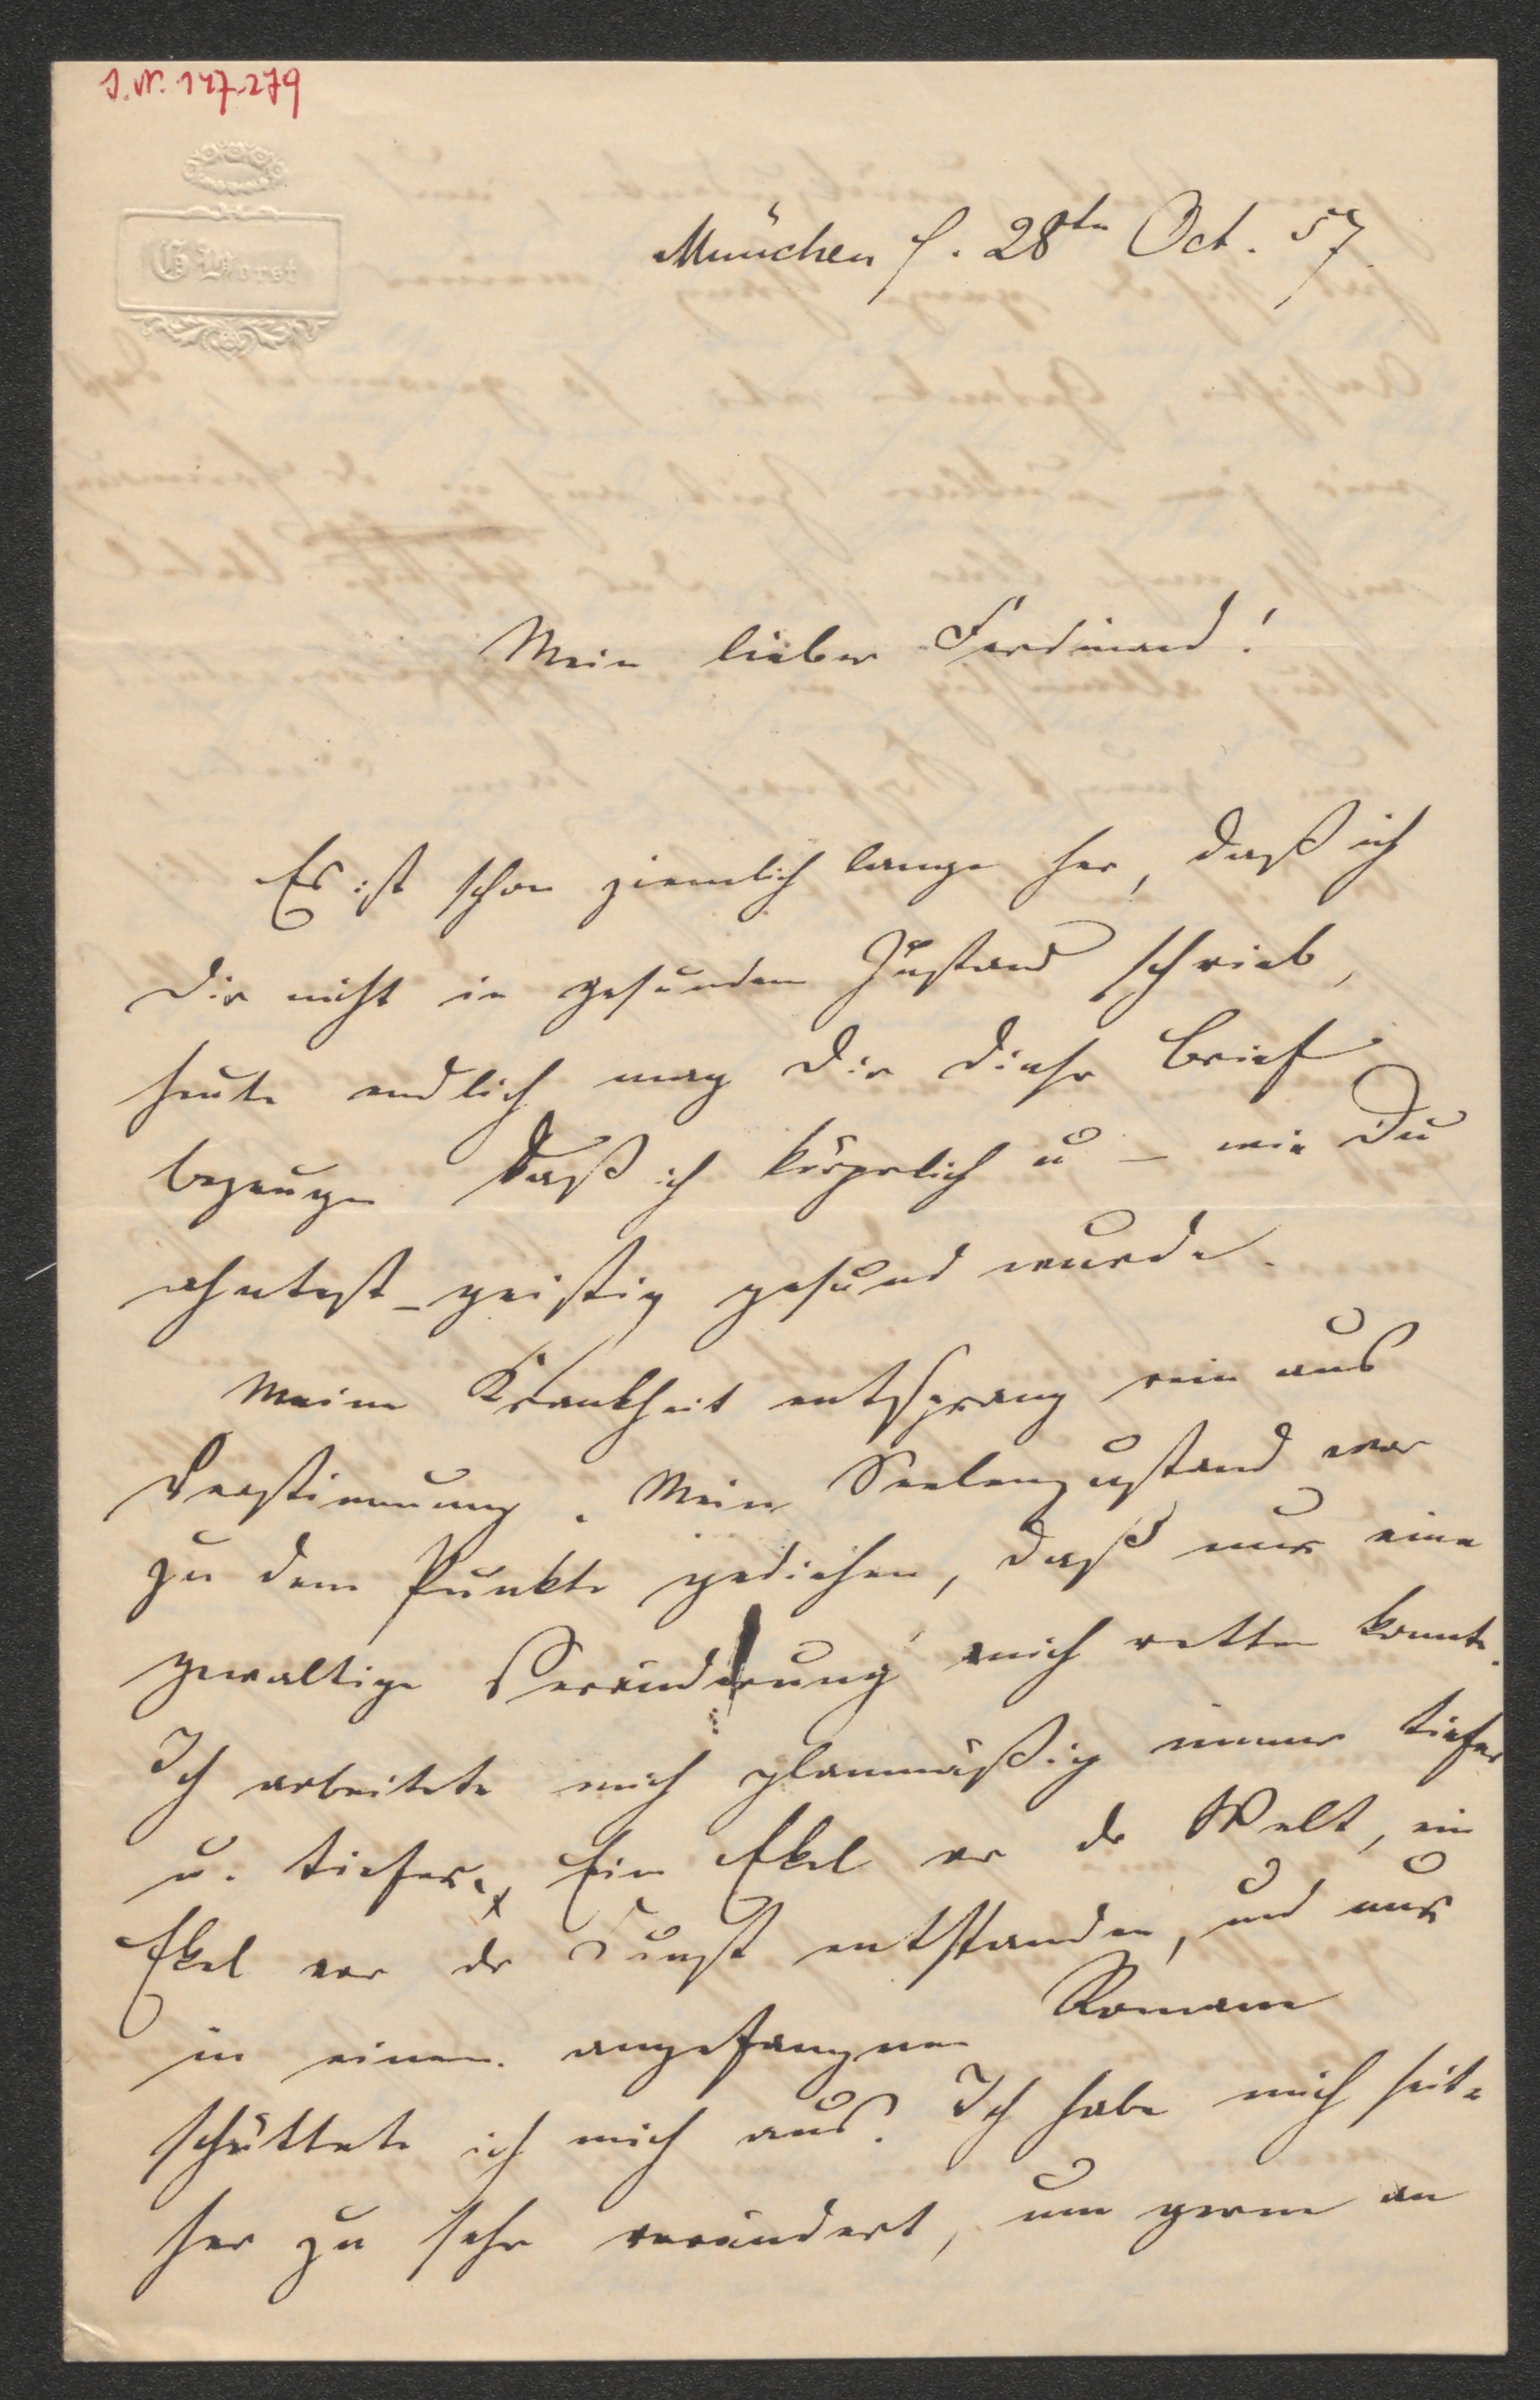 I.N. 127.279
G Worst
München d. 28tn Oct. 57.
Mein lieber Ferdinand!
Es ist schon ziemlich lange her, daß ich
Dir nicht in gesunden Zustand schrieb,
heute endlich mag Dir dieser Brief
bezeugen daß ich körperlich u – wie Du
ahntest – geistig gesund wurde.
Meine Krankheit entsprang rein aus
Verstimmung. Mein Seelenzustand war
zu dem Punkte gediehen, daß nur eine
gewaltige Veränderung mich retten konnte.
Ich arbeitete mich planmäßig immer tiefer
u. tiefer. Ein Ekel vor der Welt, ein
Ekel vor der Kunst entstanden, und nur
in einem angefangnen Romane
schüttete ich mich aus. Ich habe mich seit-
her zu sehr verändert, um gerne an